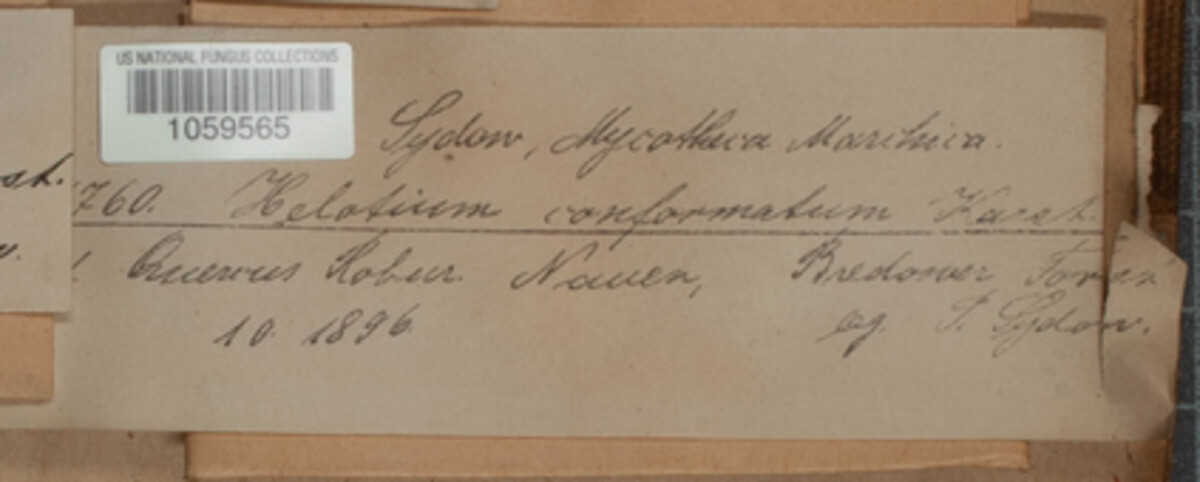 US NATIONAL FUNGUS COLLECTIONS
1059565
Sydow, Mycotheca Marchica.
st.
760. Helotium conformatum Karst.
Quercus Robur. Nauen, Bredower Forst
10. 1896. leg. P. Sydow.